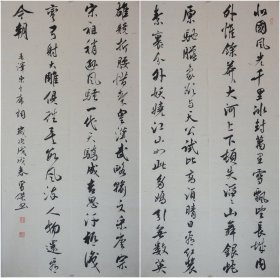 北國風光千里冰封萬里雪飄望長城内
外惟餘莽莽大河上下頓失滔滔山舞銀蛇
原馳臘象欲与天公試比高須晴日看紅裝
素裹分外妖嬈江山如此多嬌引無數英
雄競折腰惜秦皇漢武略輸文采唐宗
宋祖稍遜風騷一代天驕成吉思汗祇識
彎弓射大雕俱往矣數風流人物還看
今朝
毛澤東 詞 歲次戊戌春